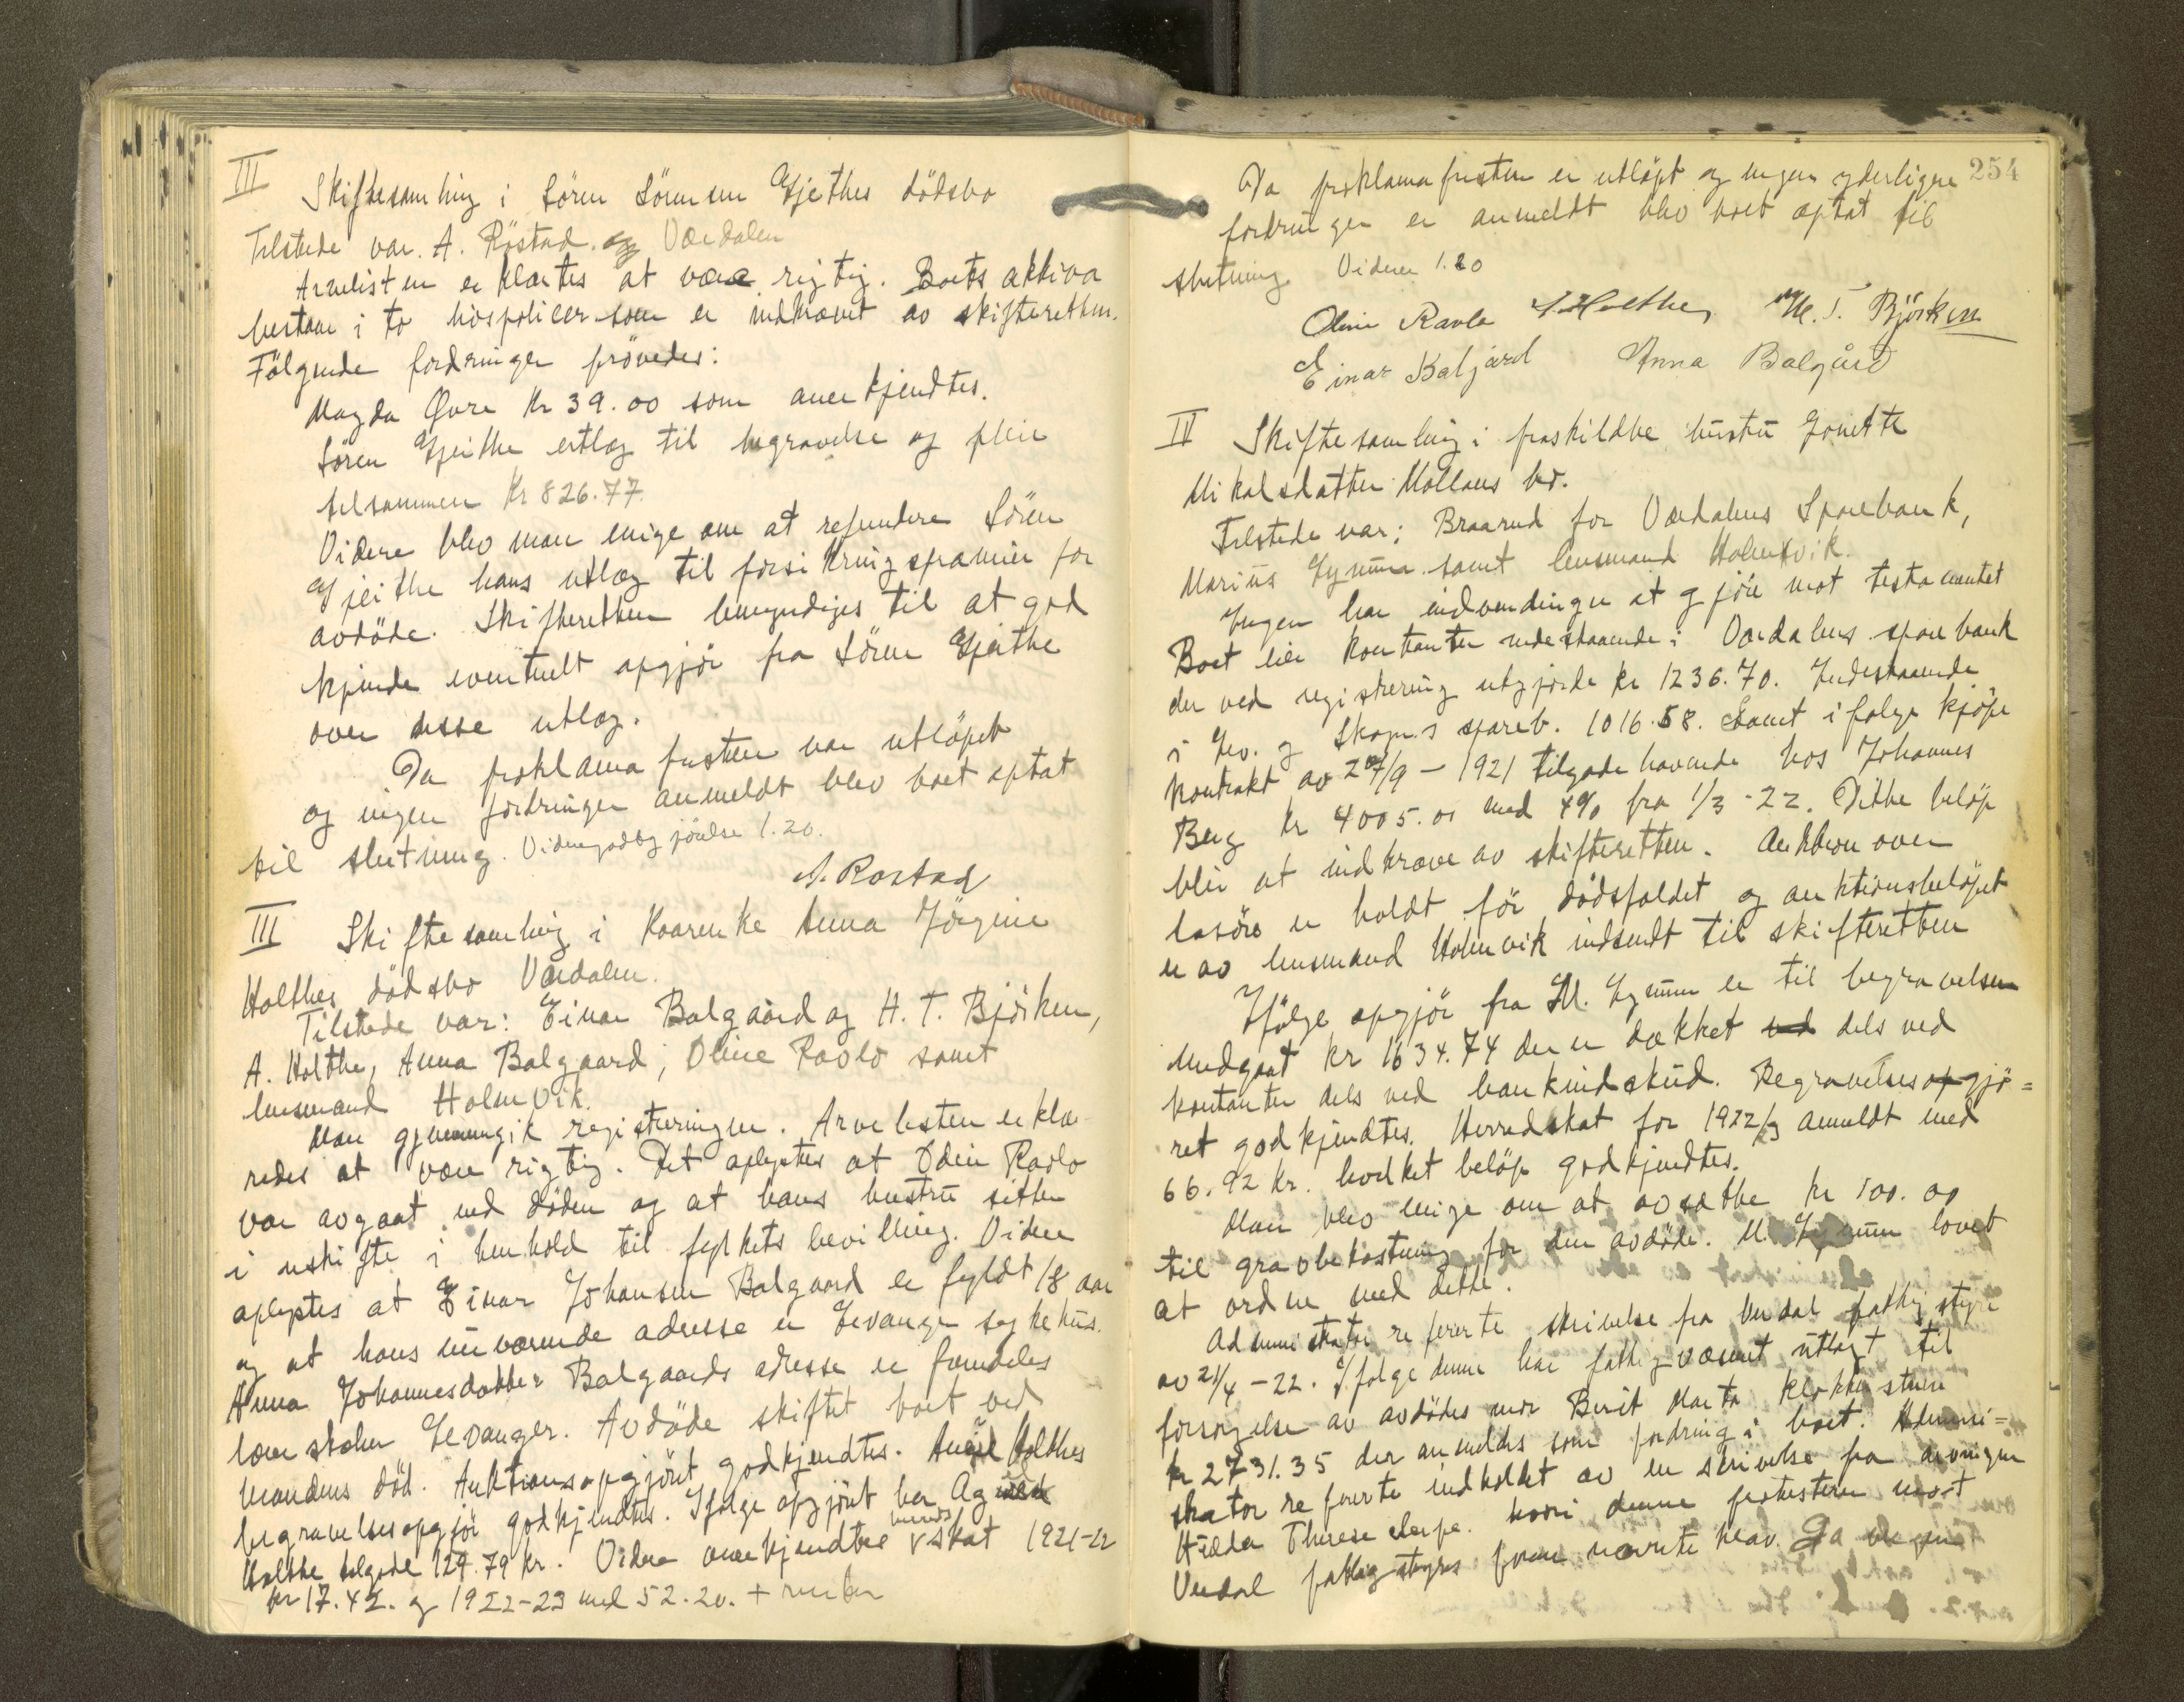 III
Skiftesamling i Sören Sörensen Gjeithes dödsbo
Tilstede var. A. Röstad. og Værdalen
Arvelisten erklærtes at være rigtig. Boets aktiva
bestaar i to livspolicer som er indkrævet av skifteretten.
Fölgende fordringer prövedes:
Magda Øvre Kr 39.00 som anerkjendtes.
Sören Gjeithe utlæg til begravelse og pleie
tilsammen Kr 826.77.
Videre blev man enige om at refundere Sören
Gjeithe hans utlæg til forsikringspræmier for
avdöde. Skifteretten bemyndiges til at god
kjende eventuelt opgjör fra Sören Gjeithe
over disse utlæg.
Da proklamafristen var utlöpet
og ingen fordringer anmeldt blev boet optat
til slutning. Vidnegodtgjörelse 1.20.
A. Rostad
III Skiftesamling i Kaarenke Anna Jörgine
Holthes dödsbo Værdalen.
Tilstede var: Einar Balgaard og H. T. Björken,
A. Holthe, Anna Balgaard, Oline Ravlo samt
lensmand Holmvik.
Man gjennemgik registreringen. Arvelisten erklæ
redes at være rigtig. Det oplystes at Odin Ravlo
var avgaat ved döden og at hans hustru sitter
i uskifte i henhold til fylkets bevilling. Videre
oplystes at Einar Johansen Balgaard er fyldt 18 aar
og at hans nuværende adresse er Levanger sykehus.
Anna Johannesdatter Balgaards adresse er fremdeles
lærerskolen Levanger. Avdöde skiftet boet ved
mandens död. Auktionsopgjöret godkjendtes. Holthes
begravelsesopgjör godkjendtes. Ifölge opgjöret har
Holthe tilgode 129.79 kr. Videre anerkjendtes skat 1921-22
kr 17.42. og 1922-23 med 52.20. + renter
254
Da proklamafristen er utlöpt og ingen yderligere
fordringer er anmeldt blev boet optat til
slutning. Vidner 1.20
Oline Ravlo A Holthe H. T. Björken
Einar Balgård Anna Balgård
IV Skiftesamling i fraskildte hustru
Mikalsdatter Mollans bo.
Tilstede var: Braarud for Værdalens Sparebank,
Marius Lynum samt lensmand Holmvik.
Ingen har indvendinger at gjöre mot testamentet
Boet eier kontanter indestaaende i Værdalens sparebank
der ved registrering utgjorde kr 1236.70. Indestaaende
i Lev. og Skogn.s spareb. 1016.58. Samt ifölge kjöpe
kontrakt av 27/9 - 1921 tilgodehavende hos Johannes
Berg kr 4005.00 med 4% fra 1/3 -22. Dette belöp
blir at indkræve av skifteretten. Auktion over
lösöre er holdt för dödsfaldet og auktionsbelöpet
er av lensmand Holmvik indsendt til skifteretten
Ifölge opgjör fra M. Lynum er til begravelsen
medgaat kr 1634.74 der er dækket ved dels ved
kontanter dels ved bankindskud. Begravelsesopgjö=
ret godkjendtes. Herredskat for 1922/23 anmeldt med
66.92 kr. hvilket belöp godkjendtes.
Man blev enige om at avsætte kr 100.00
til gravbekostning for den avdöde. M. Lynum lovet
at ordne med dette.
Administrator refererte skrivelse fra Verdal fattigstyre
av 21/4 - 22. Ifölge denne har fattigvæsenet utlagt til
forsörgelse av avdödes mor Berit Marta
kr 2731.35 der anmeldes som fordring i boet. Admini=
strator refererte indholdet av en skrivelse fra arvingen
Hilda Therese hvori denne protesterer mot
Verdal fattigstyres krav. Da